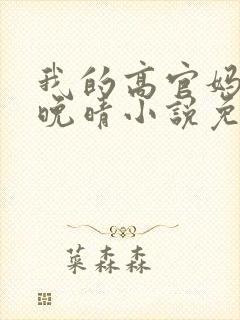 我的高官妈
晚晴小说免
菜森森